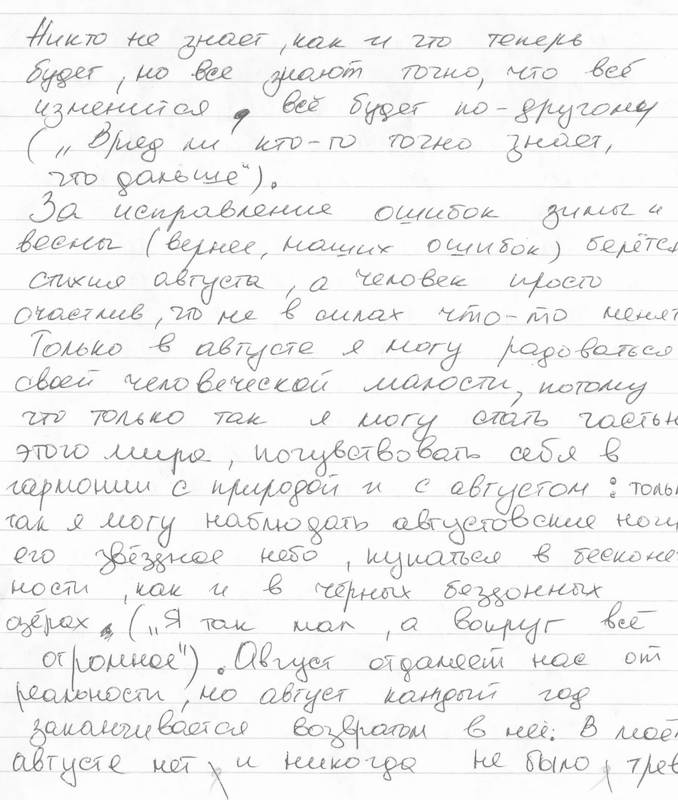 Никто не знает, как и что теперь
будет, но все знают точно, что всё
изменится, всё будет по-другому
(„Вряд ли кто-то точно знает,
что дальше").
За исправление ошибок зимы и
весны (вернее, наших ошибок) берётся
стихия августа, а человек просто
счастлив, что не в силах что-то менят
Только в августе я могу радоваться
своей человеческой малости, потому
что только так я могу стать частью
этого мира, почувствовать себя в
гармонии с природой и с августом: тольк
так я могу наблюдать августовские ночи
его звёздное небо, купаться в бесконе
ности, как и в чёрных бездонных
озёрах. („Я так мал, а вокруг всё
огромное"). Август отдаляет нас от
реальности, но август каждый год
заканчивается возвратом в неё. В моём
августе нет и никогда не было трев